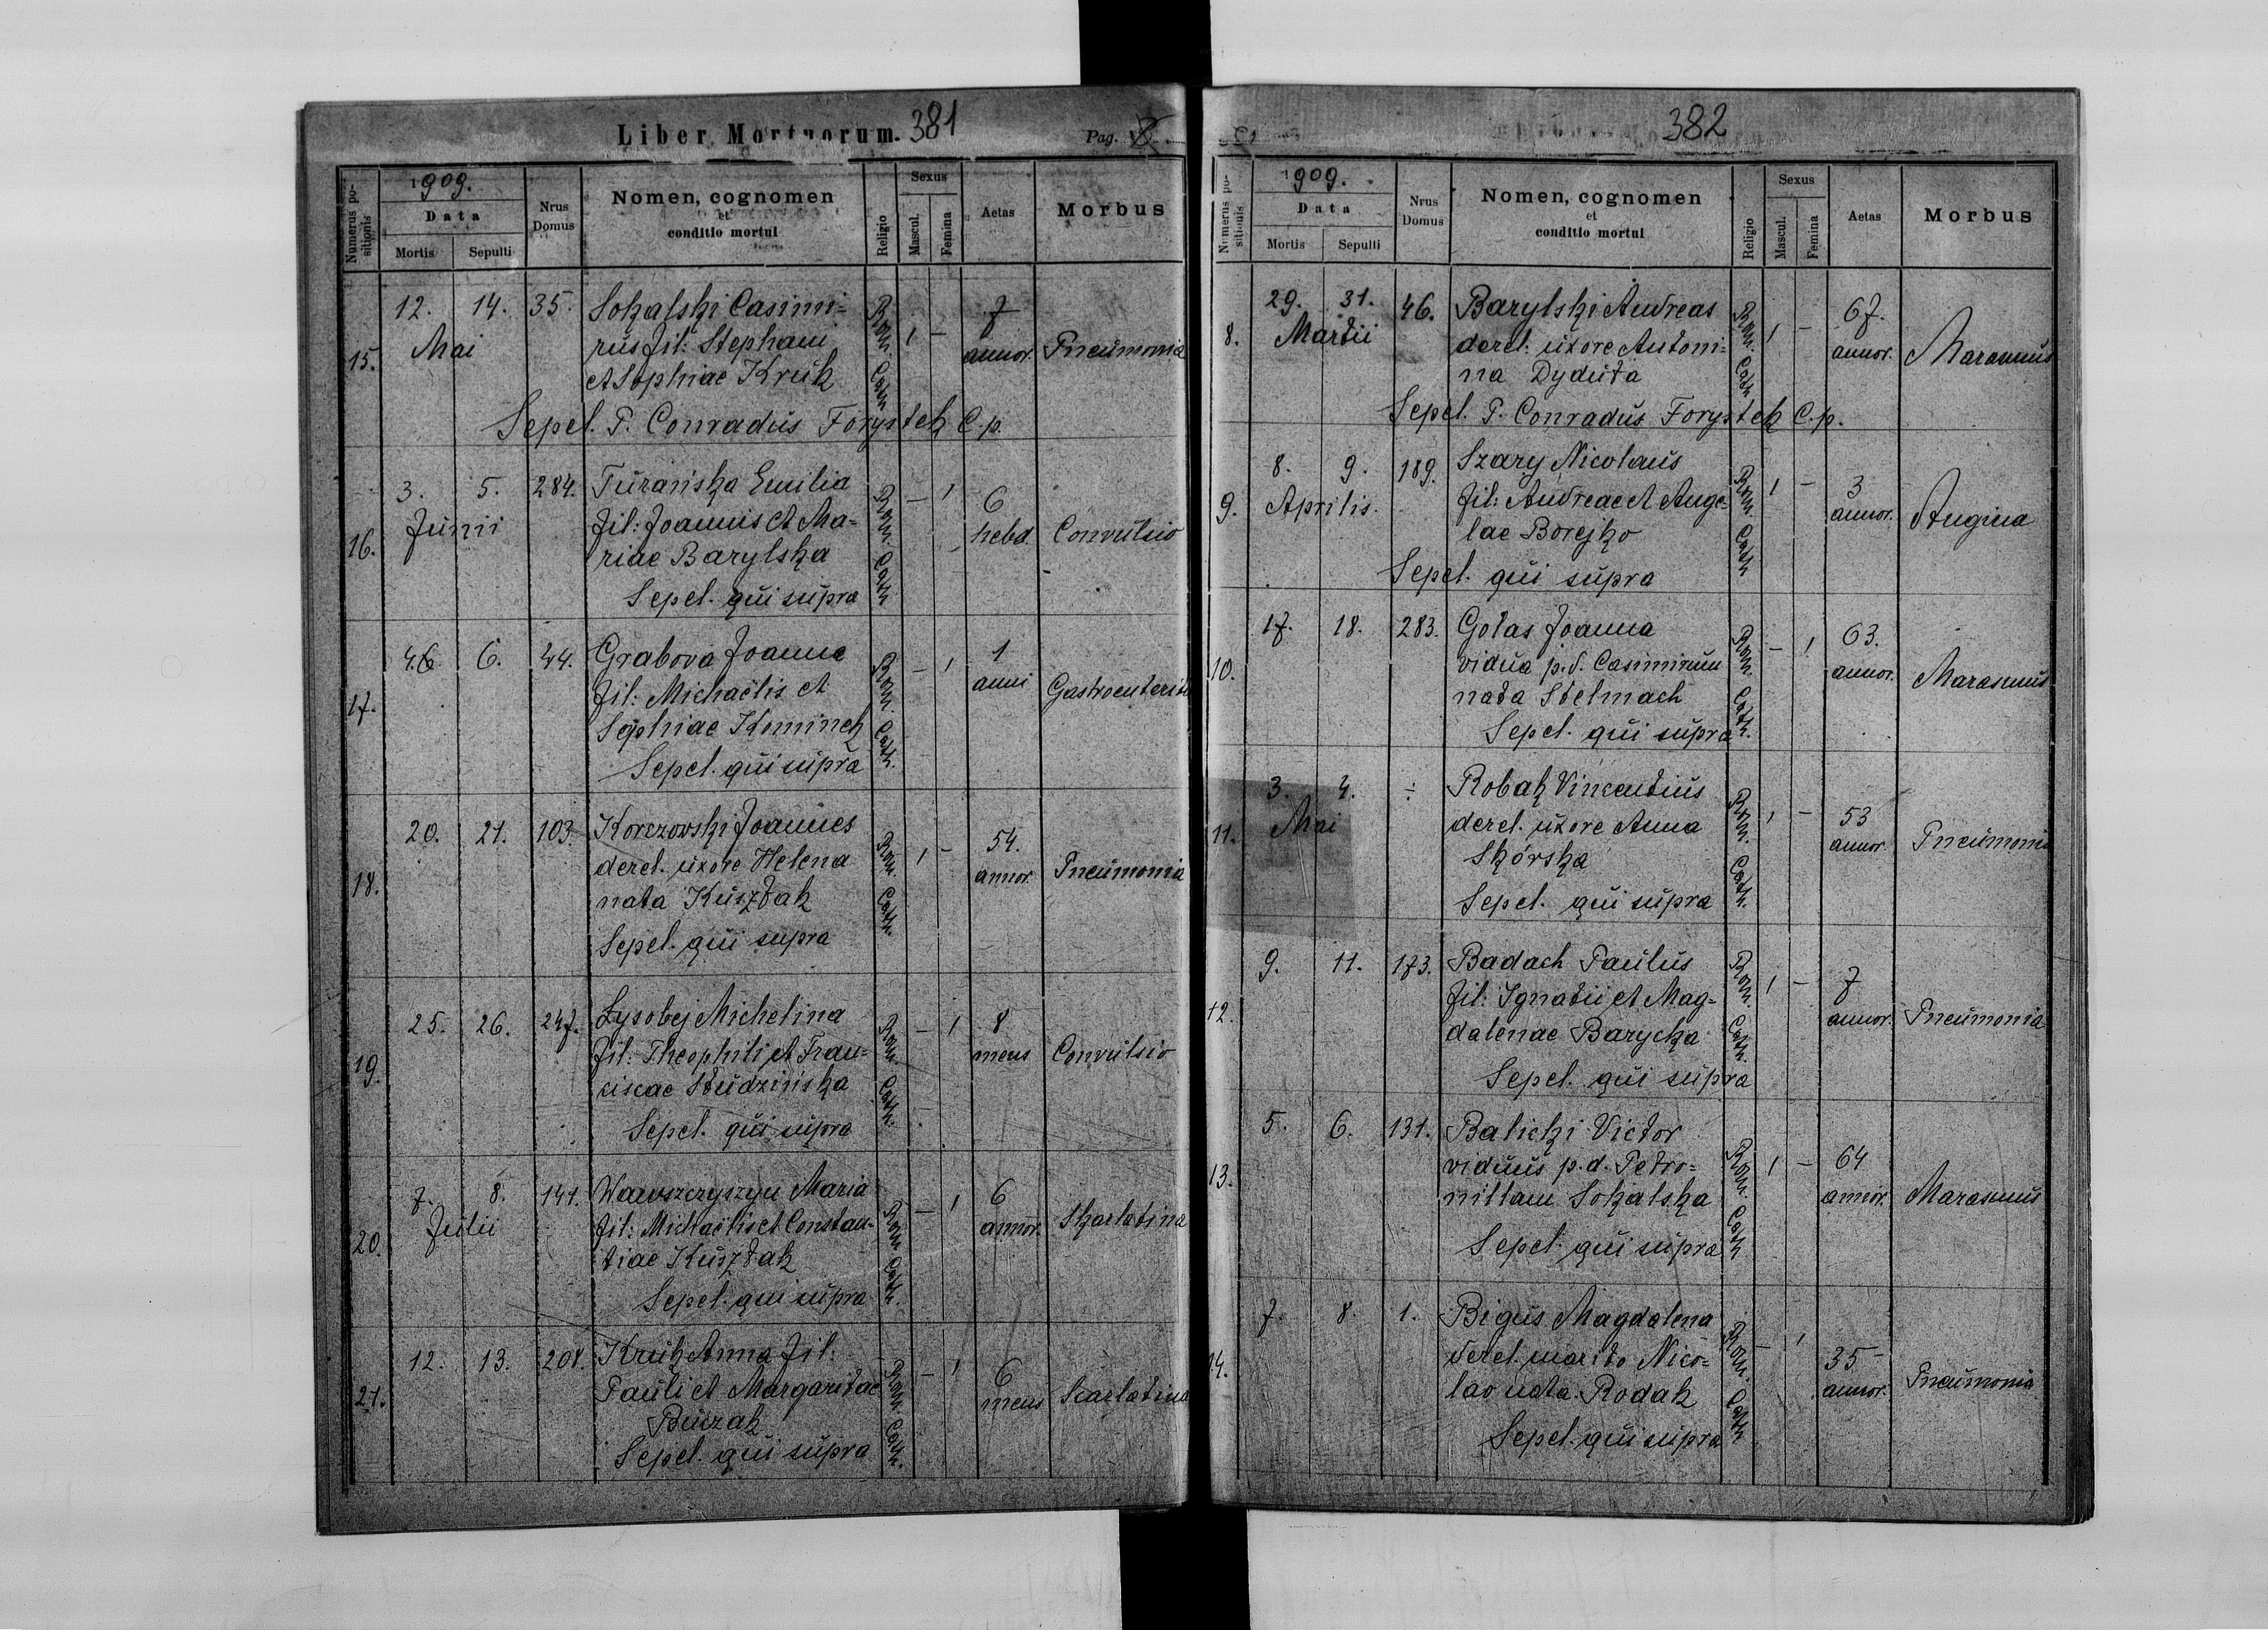 Liber Mortuorum. 381
Pag.
Numerus positionis
1909.
Data
Mortis
Sepulti
Nrus Domus
Nomen, cognomen
et
conditio mortui
Religio
Sexus
Mascul.
Femina
Aetas
Morbus
15. 12. 14. 35. Sokalski Casimi- Rom. Cath 1 – 7
Mai rus fil: Stephani annor. Pneumonia
et Sophiae Kruk
Sepel. P. Conradus Forystek C. p.
16. 3. 5. 284. Turańska Emilia Rom. Cath – 1 6
Junii fil: Joannis et Ma- hebd. Convulsio
riae Barylska
Sepel. qui supra
17. 4.6. 6. 44. Grabova Joanna Rom. Cath. – 1 1
fil: Michaëlis et anni Gastroenteritis
Sophiae Kominek
Sepel. qui supra
18. 20. 21. 103. Korczowski Joannes Rom. Cath. 1 – 54.
derel. uxore Helena annor. Pneumonia
nata Kusztak
Sepel. qui supra
19. 25. 26. 247. Lysobej Michelina Rom. Cath. – 1 8
fil: Theophili et Fran- mens Convulsio
ciscae Studzińska
Sepel. qui supra
20. 7. 8. 141. Wawszczyszyn Maria Rom. Cath. – 1 6
Julii fil: Michaëlis et Constan- annor. Skarlatina
tiae Kusztak
Sepel. qui supra
21. 12. 13. 208. Kruk Anna fil: Rom. Cath. – 1 6
Pauli et Margaritae mens Scarlatina
Buczak
Sepel. qui supra
382
Numerus positionis
1909.
Data
Mortis
Sepulti
Nrus Domus
Nomen, cognomen
et
conditio mortui
Religio
Sexus
Mascul.
Femina
Aetas
Morbus
8. 29. 31. 46. Barylski Andreas Rom. Cath 1 – 67.
Martii derel: uxore Antoni- annor. Marasmus
na Dyduta
Sepel. P. Conradus Forystek C. p.
9. 8. 9. 189. Szary Nicolaus Rom. Cath 1 – 3
Aprilis. fil: Andreae et Ange- annor. Angina
lae Borejko
Sepel. qui supra
10. 17. 18. 283. Gołas Joanna Rom. Cath. – 1 63.
vidua p. d. Casimirum annor. Marasmus
nata Stelmach
Sepel. qui supra
11. 3. 4. ÷ Robak Vincentius Rom. Cath. 1 – 53
Mai derel. uxore Anna annor. Pneumonia
Skórska
Sepel. qui supra
12. 9. 11. 173. Badach Paulus Rom. Cath. 1 – 7
fil: Ignatii et Mag- annor. Pneumonia
dalenae Barycka
Sepel. qui supra
13. 5. 6. 131. Balicki Victor Rom. Cath 1 – 64
viduus p. d. Petro- annor. Marasmus
nillam Sokalska
Sepel. qui supra
14. 7. 8. 1. Bigus Magdalena Rom. Cath – 1 35
derel. marito Nico- annor. Pneumonia
lao nata Rodak
Sepel. qui supra